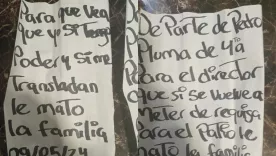 Para que Vea
que yo si tengo
Poder y si me
Transladan
le mato
la familia
09/05/24
De Parte de Pedro
Pluma de 4ª
Para el director
que si se vuelve a
Meter de requisa
Para el Patio le
mato la familia